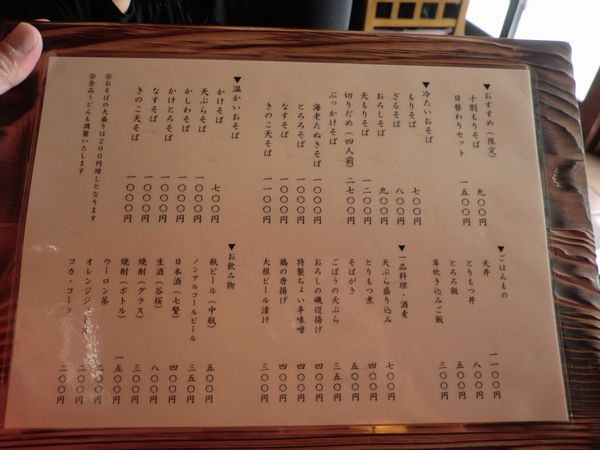 ▼おすすめ(限定)
十割もりそば 九〇〇円
日替わりセット 一五〇〇円
▼冷たいおそば
もりそば 七〇〇円
ざるそば 八〇〇円
おろしそば 九〇〇円
天もりそば 一二〇〇円
切りだめ(四人前) 二七〇〇円
ぶっかけそば
海老たぬきそば 一〇〇〇円
とろろそば 一〇〇〇円
なすそば 一〇〇〇円
きのこ天そば 一一〇〇円
▼温かいおそば
かけそば 七〇〇円
天ぷらそば 一〇〇〇円
かしわそば 一〇〇〇円
かけとろそば 一〇〇〇円
なすそば 一〇〇〇円
きのこ天そば 一〇〇〇円
※おそばの大盛りは200円増しとなります
※全品うどんも調製いたします
▼ごはんもの
天丼 一一〇〇円
とりもつ丼 八〇〇円
とろろ飯 五〇〇円
茸炊き込みご飯 三〇〇円
▼一品料理・酒肴
天ぷら盛り込み 七〇〇円
とりもつ煮 四〇〇円
そばがき 五〇〇円
ごぼうの天ぷら 三五〇円
おろしの磯辺揚げ 四〇〇円
特製ちょい辛味噌 四〇〇円
鶏の唐揚げ 四〇〇円
大根ビール漬け 三〇〇円
▼お飲み物
瓶ビール(中瓶) 五〇〇円
ノンアルコールビール 三五〇円
日本酒(七賢) 四〇〇円
生酒(谷桜) 八〇〇円
焼酎(グラス) 三〇〇円
焼酎(ボトル) 一五〇〇円
ウーロン茶 二〇〇円
オレンジジュース 二〇〇円
コカ・コーラ 二〇〇円